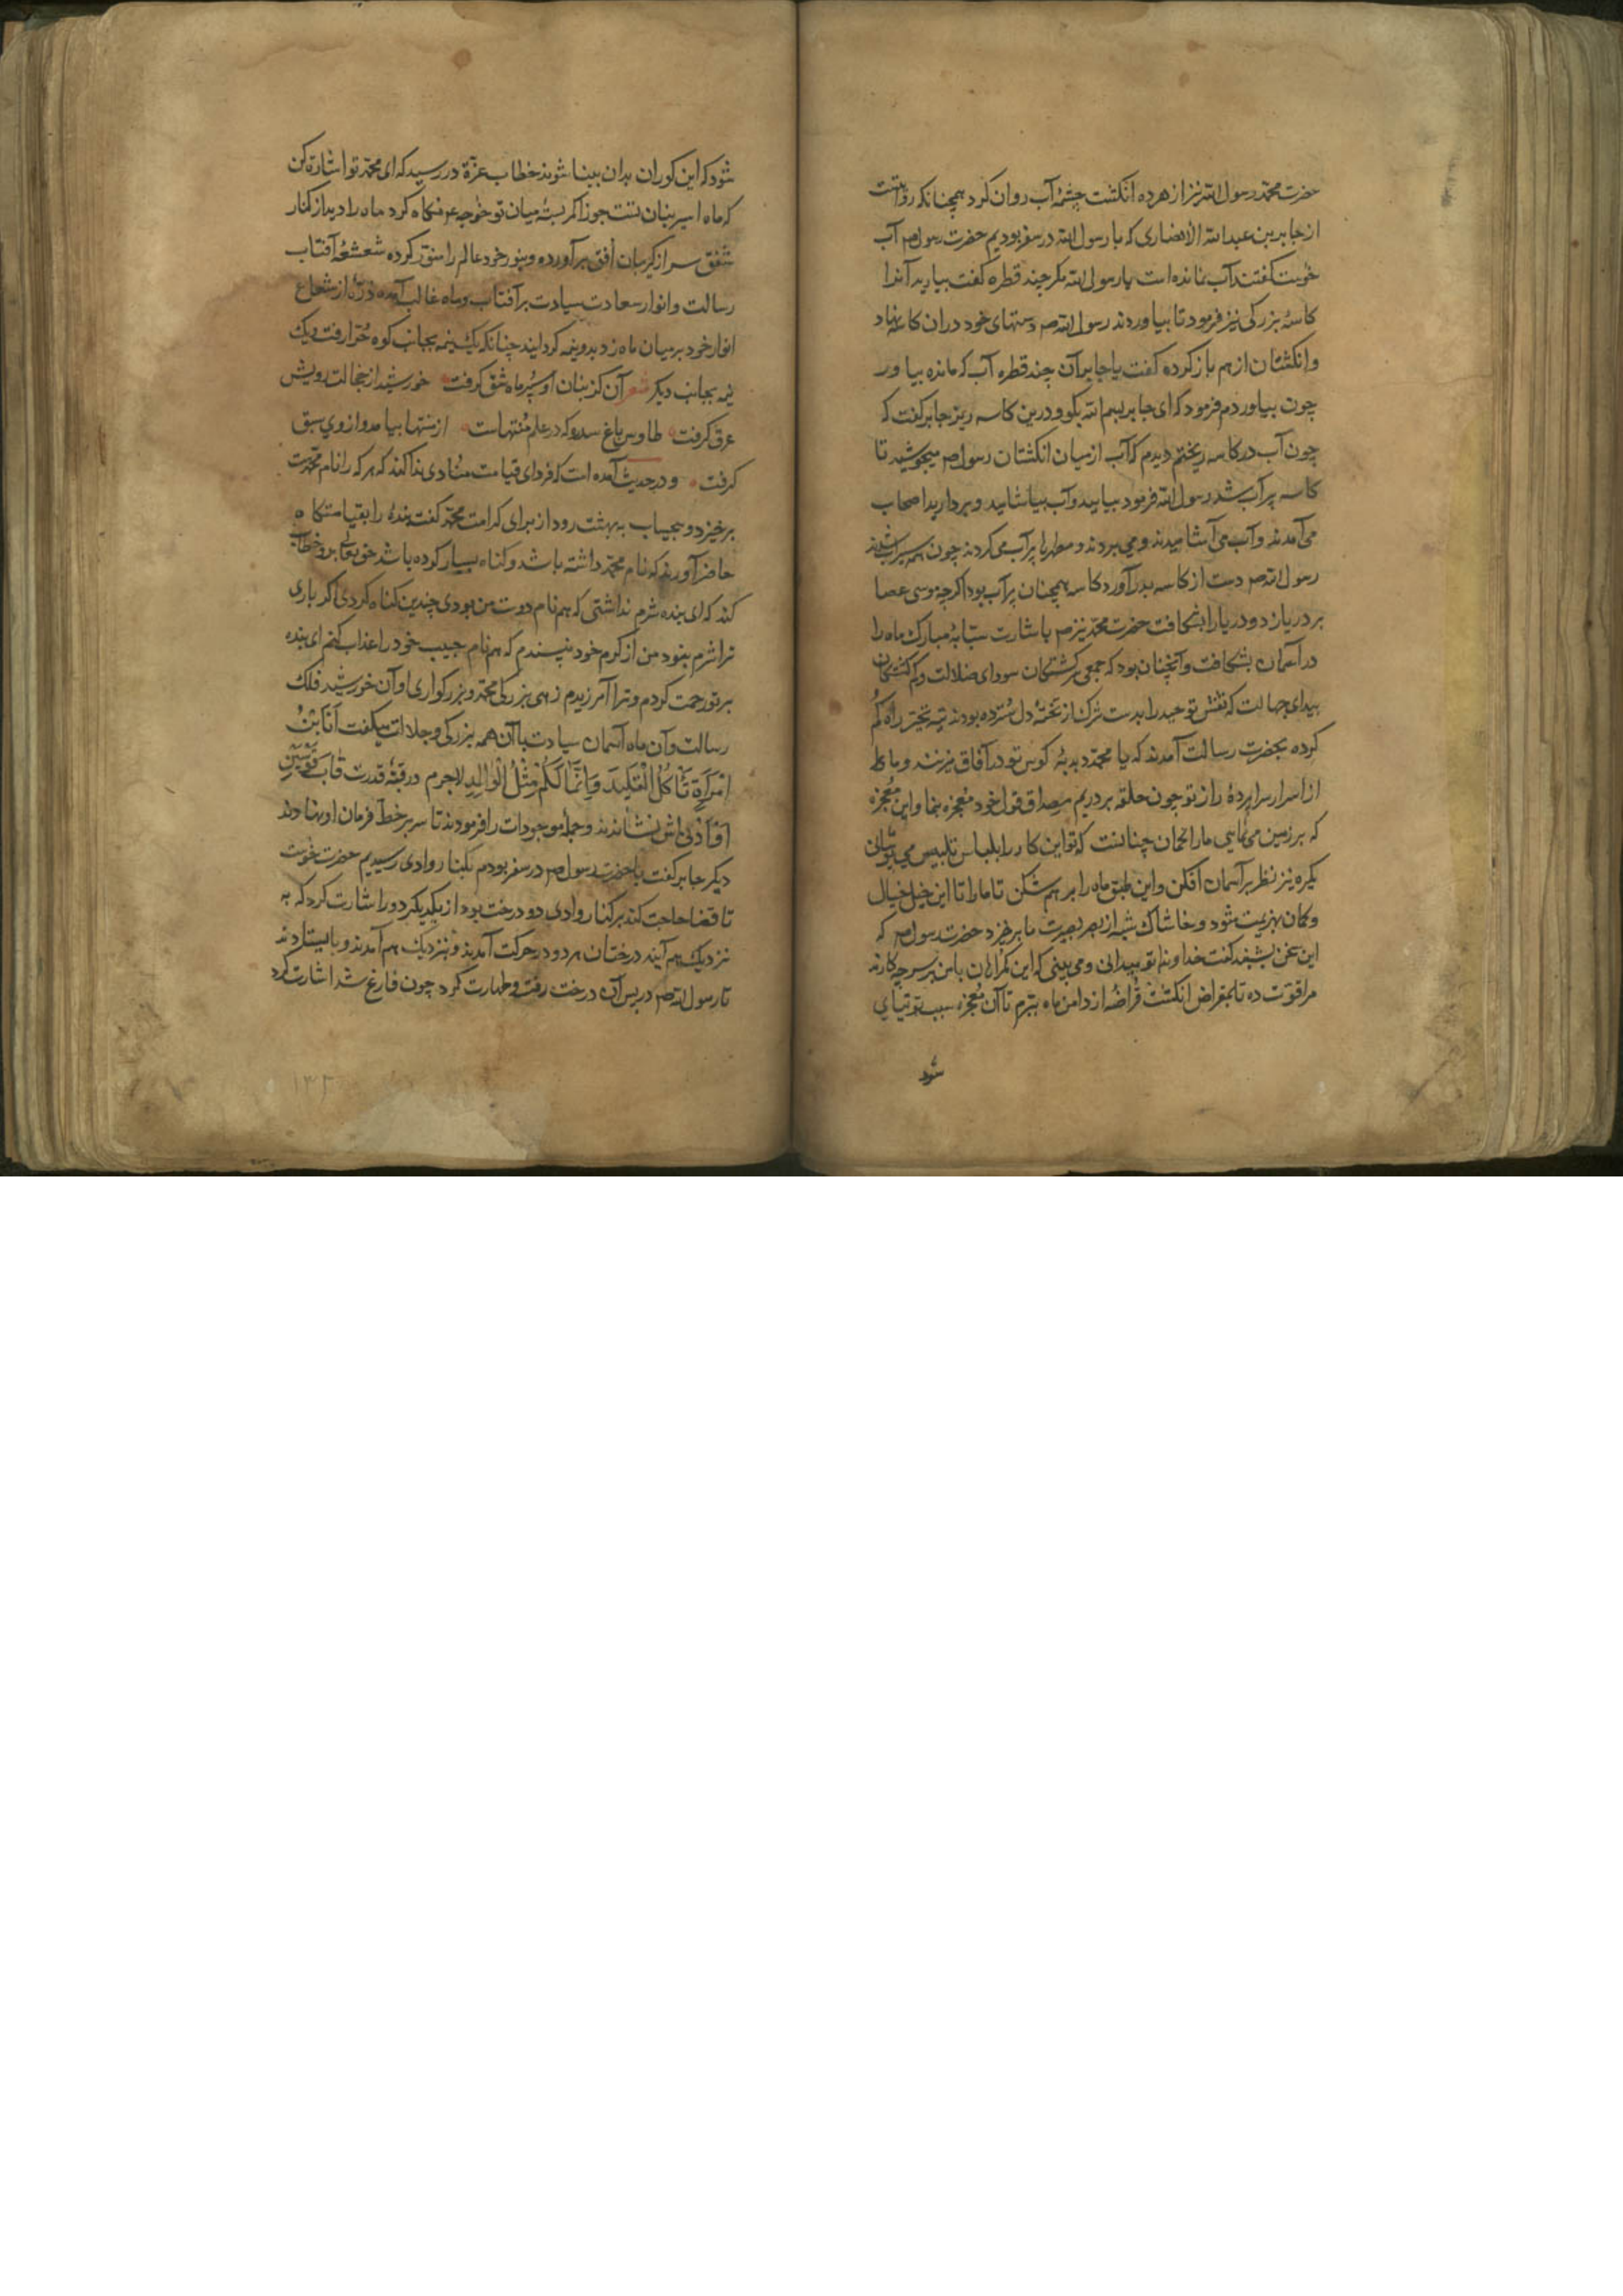 حضرت محمد رسول الله نیز از هر ده انکشت چشمهٔ آب روان کرد همچنانکه روایتست
از جابر بن عبد الله الانصاری که با رسول الله در سفر بودیم حضرت رسول صم آب
خوست کفتند آب نمانده است یا رسول الله مکر چند قطره کفت بیارید آنرا
کاسهٔ بزرکی نیز فرمود تا بیاوردند رسول الله صم دستهای خود در ان کاسه نهاد
و انکشتان از هم باز کرده کفت یا جابر آن چند قطره آب که مانده بیاور
چون بیاوردم فرمود که ای جابر بسم الله بکو و درین کاسه ریز جابر کفت که
چون آب در کاسه ریختم دیدم که آب از میان انکشتان رسول صم میجوشید تا
کاسه پر آب شد رسول الله فرمود بیایید و آب بیاشامید و بردارید اصحاب
می آمدند و آب می آشامیدند و می بردند و مطهرها پر آب می کردند چون همه سیراب شدند
رسول الله صم دست از کاسه بدر آورد کاسه همچنان پر آب بود اکرچه موسی عصا
بر دریا زد و دریا را بشکافت حضرت محمد نیز صم باشارت سبّابهٔ مبارک ماه را
در آسمان بشکافت و آنچنان بود که جمعی سرکشتکان سودای ضلالت و کم کشتکان
بیدای جهالت که نقش توحید را بدست شرک از تختهٔ دل سُترده بودند تیه تحیّر راه کم
کرده بحضرت رسالت آمدند که یا محمد دبدبهٔ کوس تو در آفاق میزنند و ما
از اسرار سراپردهٔ راز تو چون حلقه بر دریم مصداق قول خود معجزه بنما و این معجزه
که بر زمین می نمایی ما را کمان چنانست که تو این کار را بلباس تلبیس می پوشانی
یکره نیز نظر بر آسمان افکن و این طبق ماه را بر هم شکن تا ما را تا این خیل خیال
و کمان بهزیمت شود و خاشاک شبه از بصر بصیرت ما برخیزد حضرت رسول صم که
این سخن بشنید کفت خداوندا تو میدانی و می بینی که این کمراهان با من بر سر چه کارند
مرا قوّت ده تا بمقراض انکشت قُراضهٔ از دامن ماه ببرم تا آن معجزه سبب توتیای
شود
شود که این کوران بدان بینا شوند خطاب عزّة در رسید که ای محمد تو اشارة کن
که ماه اسیر بنان تست جوزا کمر بستهٔ میان تو خوجه عم نکاه کرد ماه را دید از کنار
شفق سر از کریبان اُفق بر آورده و بنور خود عالم را منوّر کرده شعشعهٔ آفتاب
رسالت و انوار سعادت سیادت بر آفتاب و ماه غالب آمده ذرّهٔ از شعاع
انوار خود بر میان ماه زد بدو نیمه کردانید چنانکه یک نیمه بجانب کوه حُرّا رفت و یک
نیمه بجانب دیکر شعر آن کز بنان او سپر ماه شق کرفت خورشید از خجالت رویش
عرق کرفت طاوس باغ سدره که در علم مُنتهاست از منتها بیامد و از وی سبق
کرفت و در حدیث آمده است که فردای قیامت مُنادی ندا کند که هر که را نام محمدست
برخیزد و بیحساب به بهشت رود از برای کرامت محمد کفت بندهٔ را بقیامتکاه
حاضر آورند که نام محمد داشته باشد و کناه بسیار کرده باشد حق تعالی برو خطاب
کند که ای بنده شرم نداشتی که هم نام دوست من بودی چندین کناه کردی اکر باری
ترا شرم نبود من از کرم خود نپسندم که هم نام حبیب خود را عذاب کنم ای بنده
بر تو رحمت کردم و ترا آمرزیدم زهی بزرکی محمد و بزرکواری او آن خورشید فلک
رسالت و آن ماه آسمان سیادت با آن همه بزرکی و جلالت میکفت اَنَا بْنُ
امْرَأَةٍ تَأْكُلُ الْقَدِيدَ وَاِنَّمَا اَنَا لَكُمْ مِثْلُ الْوَالِدِ لاجرم در قبّهٔ قدرت قاب قَوْسَيْنِ
اَوْ اَدْنٰى اش نشاندند و جملهٔ موجودات را فرمودند تا سر بر خط فرمان او نهادند
دیکر جابر کفت با حضرت رسول صم در سفر بودم بکنار وادی رسیدیم حضرت خوست
تا قضا حاجت کند بر کنار وادی دو درخت بود از یکدیکر دور اشارت کرد که به
نزدیک هم آیند درختان هر دو در حرکت آمدند و نزدیک هم آمدند و بایستادند
تا رسول الله صم در پس آن درخت رفت و طهارت کرد چون فارغ شد اشارت کرد
۱۳۲